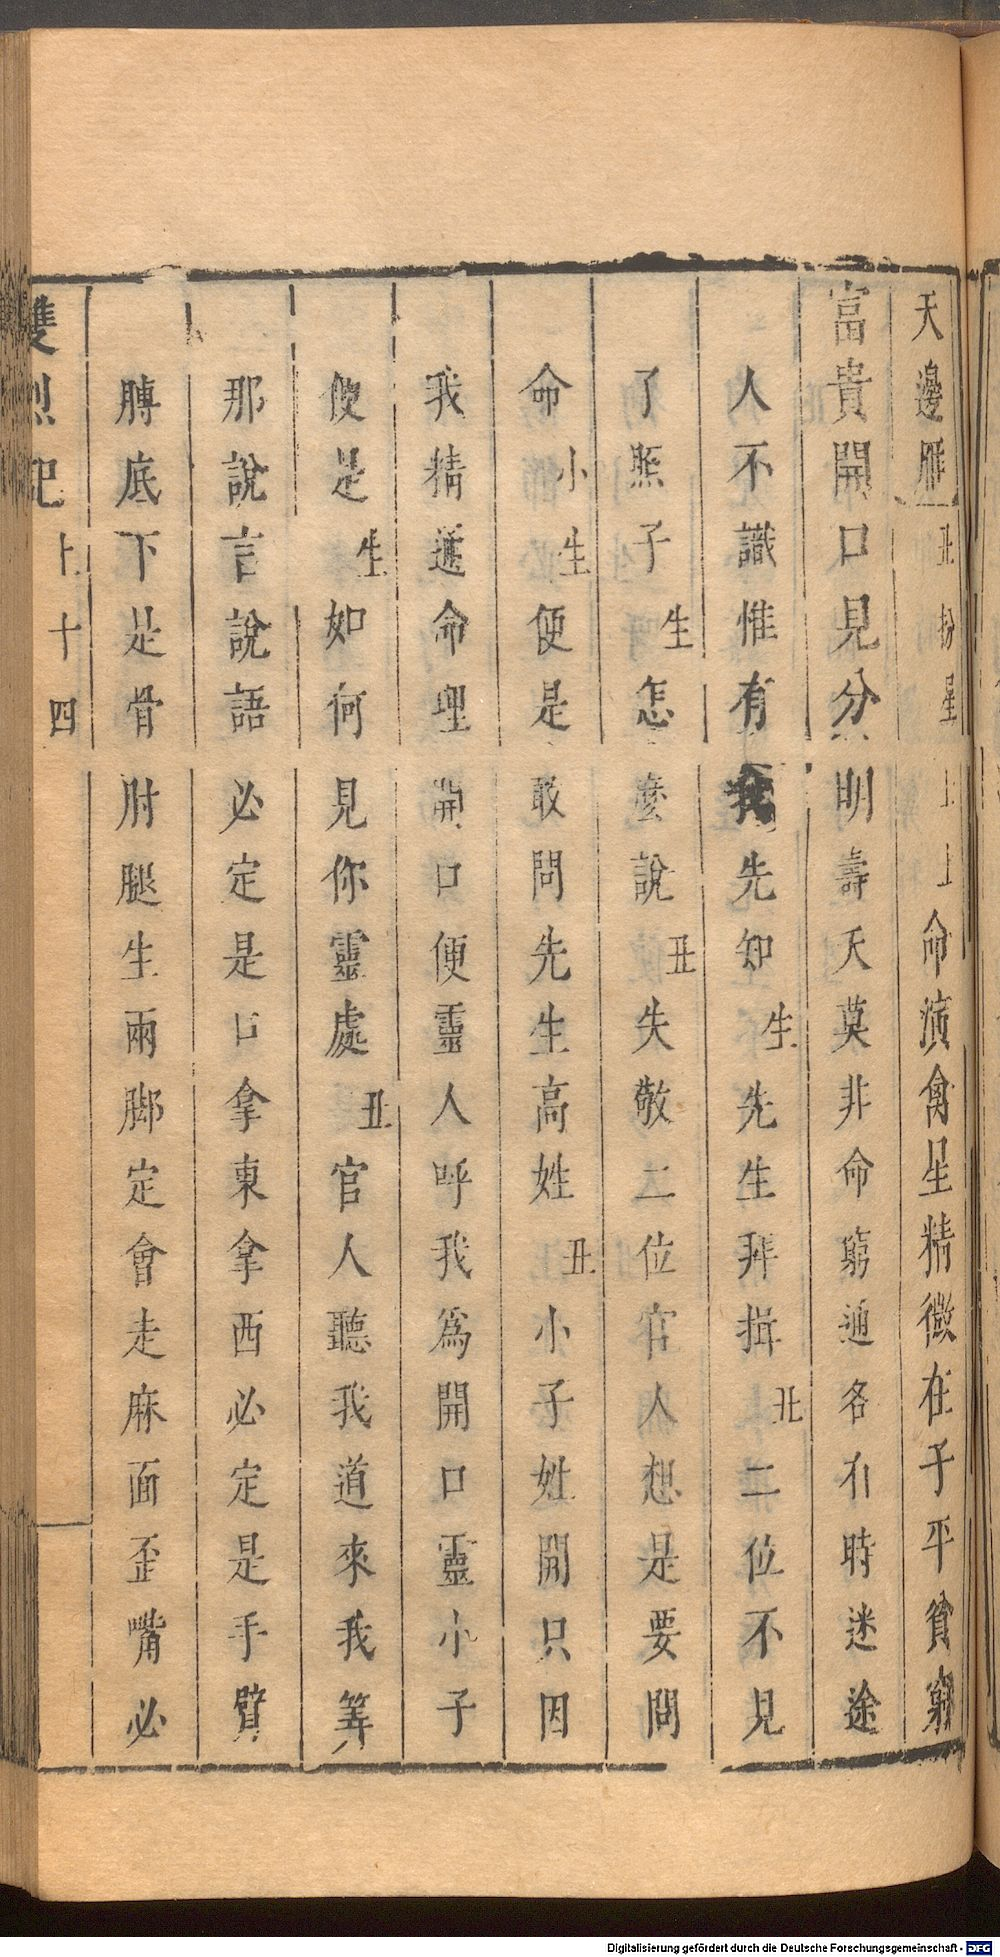 天邊雁丑扮星上上命演禽星精微在于平貧窮
富貴開口見分明壽夭莫非命窮通各有時迷途
人不識惟有我先知生先生拜揖丑二位不見
了照子生怎麼說丑失敬二位官人想是要問
命小生便是敢問先生高姓丑小子姓開只因
我精通命理開口便靈人呼我為開口靈小子
便是生如何見你靈處丑官人聽我道來我筭
那說言說語必定是口拿東拿西必定是手臂
膊底下是骨肘腿生兩脚定會走麻面歪嘴必
雙烈記
上十四
Digitalisierung gefördert durch die Deutsche Forschungsgemeinschaft - DFG